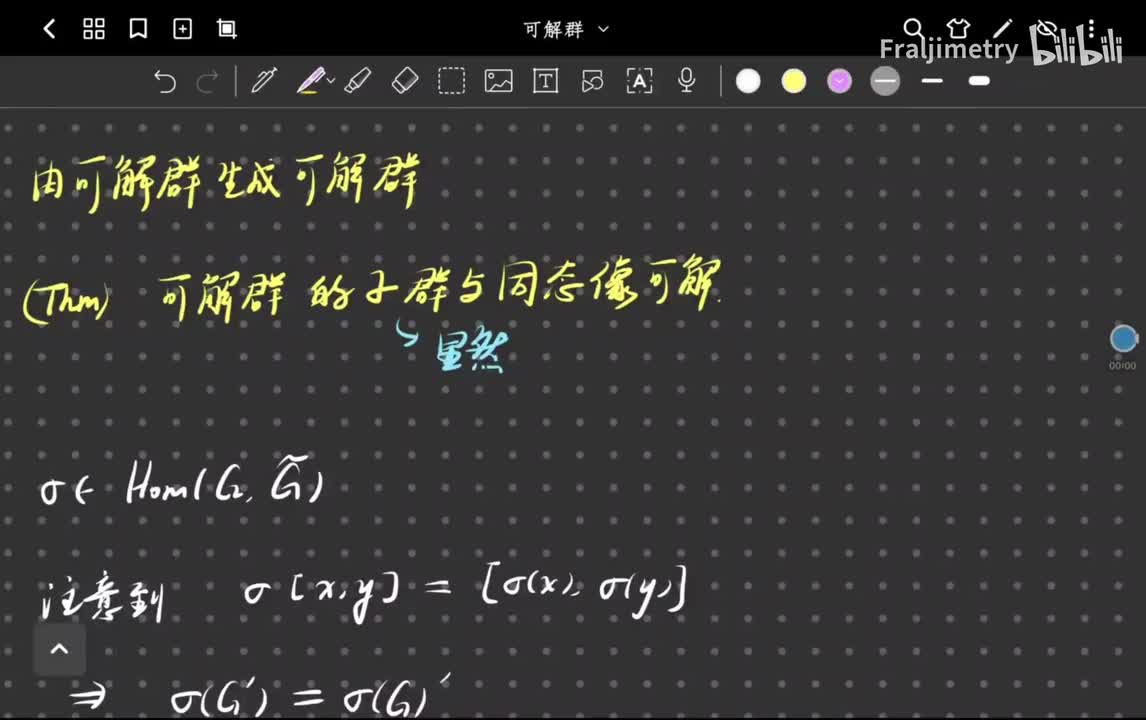 可解群
Fraljimetry bilibili
T A
由可解群生成可解群
(Thm) 可解群的子群与同态像可解.
显然
00:00
σ∈ Hom(G, G̃)
注意到 σ[x,y] = [σ(x), σ(y)]
⇒ σ(G′) = σ(G)′